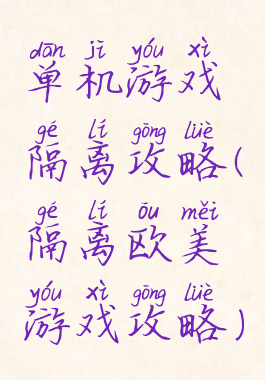 dān jī yóu xì
单机游戏
gé lí gōng lüè
隔离攻略(
gé lí ōu měi
隔离欧美
yóu xì gōng lüè
游戏攻略)